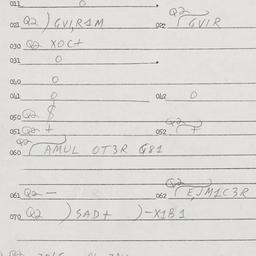 011 0
021 Q2 ) GV1,R1M 022 Q2 GV1R
030 Q2 XOC+
031 0
040 0
041 0 042 0
050 Q2 $
051 Q2 + 052 Q2 +
060 Q2 AMUL OT3R G81
061 Q2 — 062 Q2 E,JM1C3R
070 Q2 ) SAD+ ) -X1B1